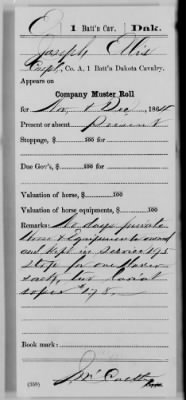 E. 1 Batt'n Cav. Dak.
Joseph Ellis
Capt, Co. A, 1 Batt'n Dakota Cavalry.
Appears on
Company Muster Roll
for Nov. & Dec, 1864
Present or absent Present
Stoppage, $ 100 for
Due Gov't, $ 100 for
Valuation of horse, $ 100
Valuation of horse equipments, $ 100
Remarks: days private
horse & Equipments owned
and kept in service
Stop for one Haver
sack, two
ropes
Book mark:
(359)
Copyist.